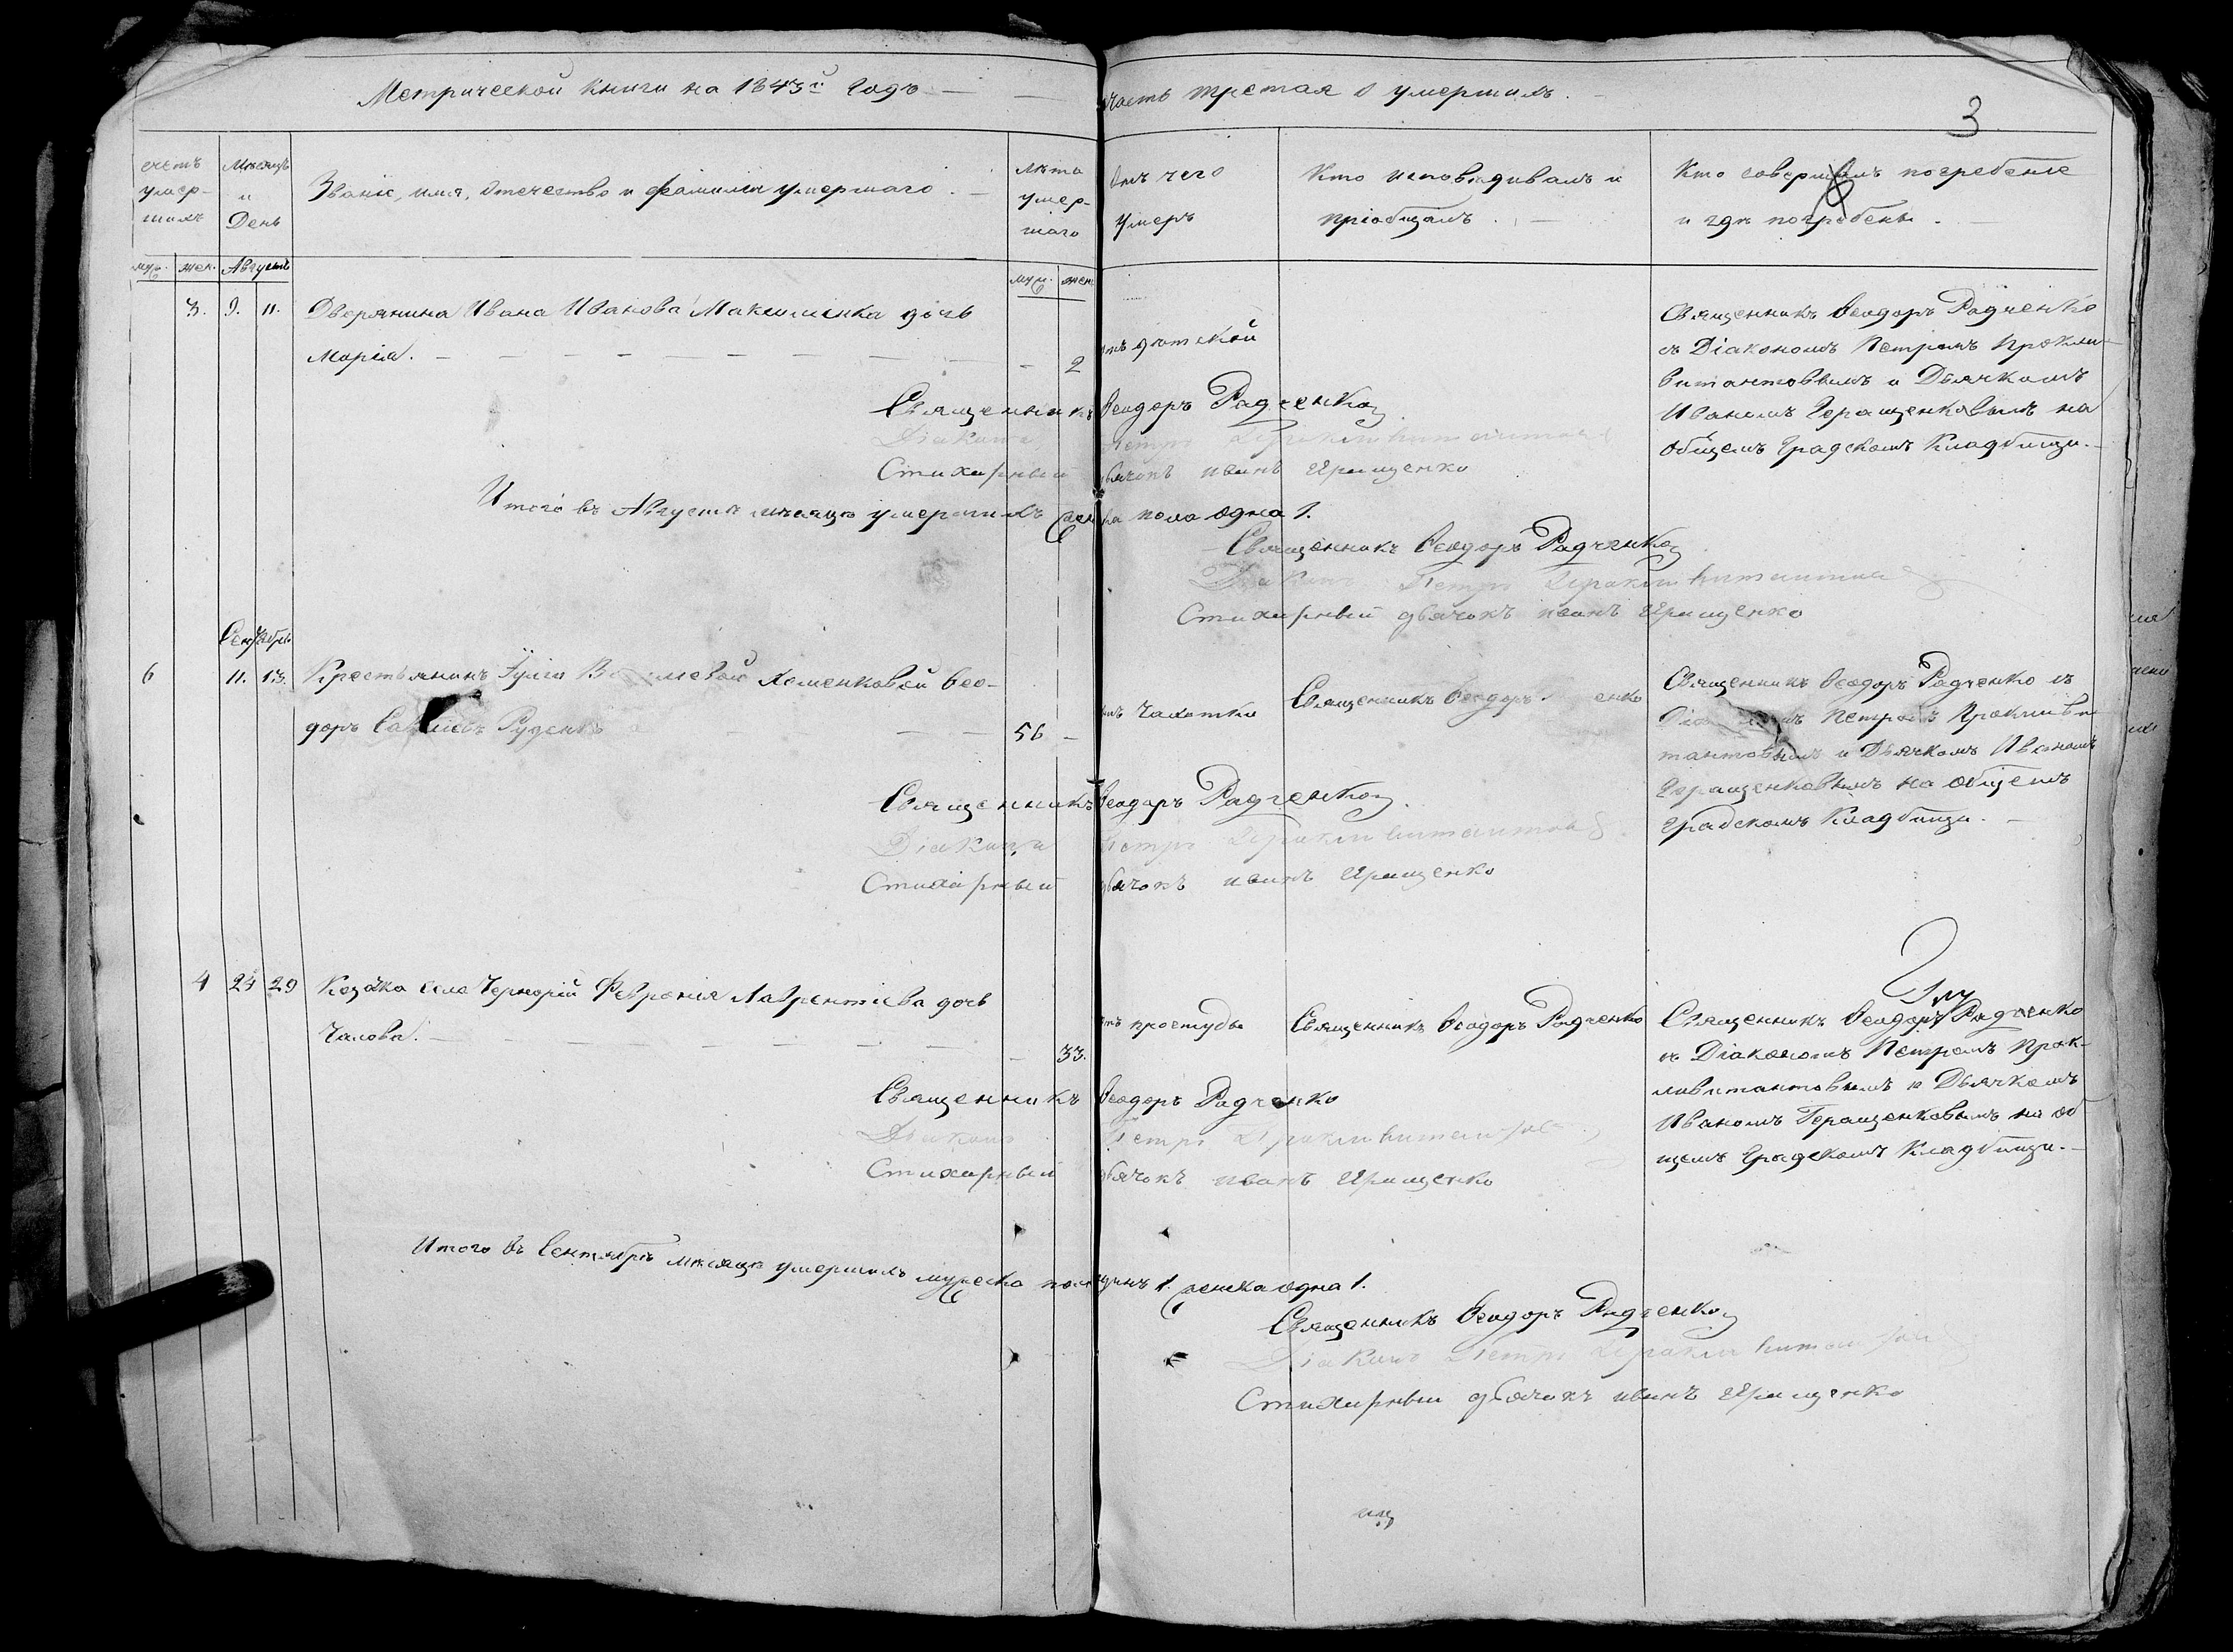 Метрической книги на 1843й годъ часть третая о умершихъ.
3
счетъ умер-шихъ
Мѣсяцъ и День
Званіе, имя, отечество и фамилія умершаго.
Лѣта умер-шаго
Отъ чего умеръ
Кто исповѣдивалъ и пріобщалъ.
Кто совершалъ погребеніе и гдѣ погребены.
муж. жен. Августъ
муж. жен.
3. 9. 11. Дворянина Ивана Иванова Максименка дочь
Марія. 2
отъ дѣтской
Священникъ Ѳеодоръ Радченко
съ Діакономъ Петромъ Проклि-
витантовымъ и Дьячкомъ
Иваномъ Геращенковымъ на
общемъ Градскомъ Кладбищи.
Священникъ Ѳеодоръ Радченко
Діаконъ Петръ
Стихарный дьячокъ иванъ Ерищенко
Итого въ Августѣ мѣсяцѣ умершихъ женска пола одна 1.
Священникъ Ѳеодоръ Радченко
Діаконъ Петръ
Стихарный дьячокъ иванъ Ерищенко
Сентябрь
6 11. 13. Крестьянинъ Хоменковой Ѳео-
доръ Руденко 56
отъ чахотки
Священникъ Ѳеодоръ
Священникъ Ѳеодоръ Радченко съ
Петромъ Прокливи
тантовымъ и Дьячкомъ Иваномъ
Геращенковымъ на общемъ
Градскомъ Кладбищи.
Священникъ Ѳеодоръ Радченко
Діаконъ Петръ
Стихарный дьячокъ иванъ Ерищенко
4 24 29 Козачка села Чернорій Февронія Лаврентіева дочь
Чалова. 33.
отъ простуды
Священникъ Ѳеодоръ Радченко
Священникъ Ѳеодоръ Радченко
съ Діакономъ Петромъ Прок-
ливитантовымъ и Дьячкомъ
Иваномъ Геращенковымъ на об
щемъ Градскомъ Кладбищи.
Священникъ Ѳеодоръ Радченко
Діаконъ Петръ
Стихарный дьячокъ иванъ Ерищенко
Итого въ Сентябрѣ мѣсяцѣ умершихъ мужеска пола одинъ 1. женска одна 1.
Священникъ Ѳеодоръ Радченко
Діаконъ Петръ
Стихарный дьячокъ иванъ Ерищенко